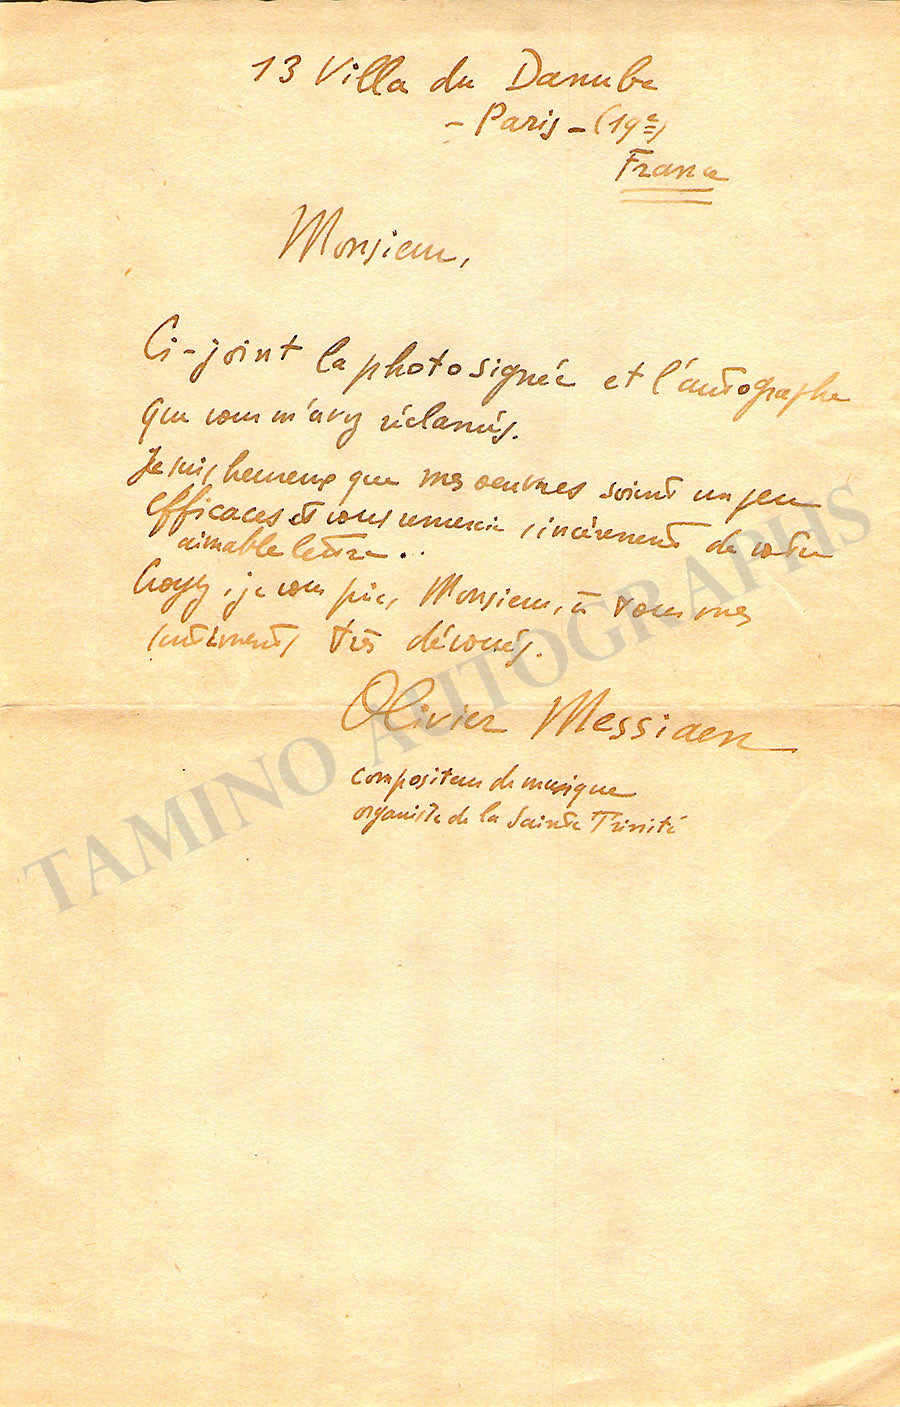 13 Villa du Danube
- Paris - (19e)
France
Monsieur,
Ci-joint la photo signée et l'autographe
que vous m'avez réclamés.
Je suis heureux que mes oeuvres soient un peu
efficaces et vous remercie sincèrement de votre
aimable lettre..
Croyez, je vous prie, Monsieur, à tous mes
sentiments très dévoués.
Olivier Messiaen
compositeur de musique
organiste de la Sainte Trinité
TAMINO AUTOGRAPHS